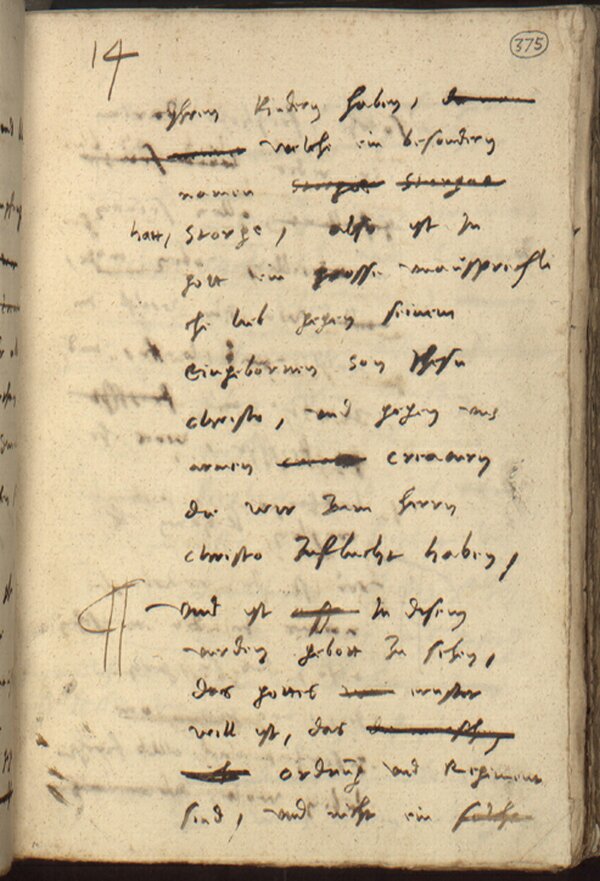 14
375
ihren kindern haben,
welche ein besondern
namen
hatt, Storge, also ist in
gott ein grosse unaussprechli
che lieb gegen seinem
Eingebornen Son Jhesu
Christo, und gegen uns
armen Creaturn
die wir zum herrn
Christo zuflucht haben,
Und ist in disem
vierden gebott zu sehen,
das gottes ernster
will ist, das
ordnung und Regiment
sind, und nicht ein